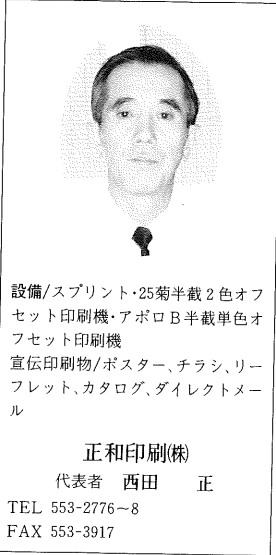 設備/スプリント・25菊半截2色オフ
セット印刷機・アポロB半截単色オ
フセット印刷機
宣伝印刷物/ポスター、チラシ、リー
フレット、カタログ、ダイレクトメー
ル
正和印刷㈱
代表者 西田 正
TEL 553-2776〜8
FAX 553-3917